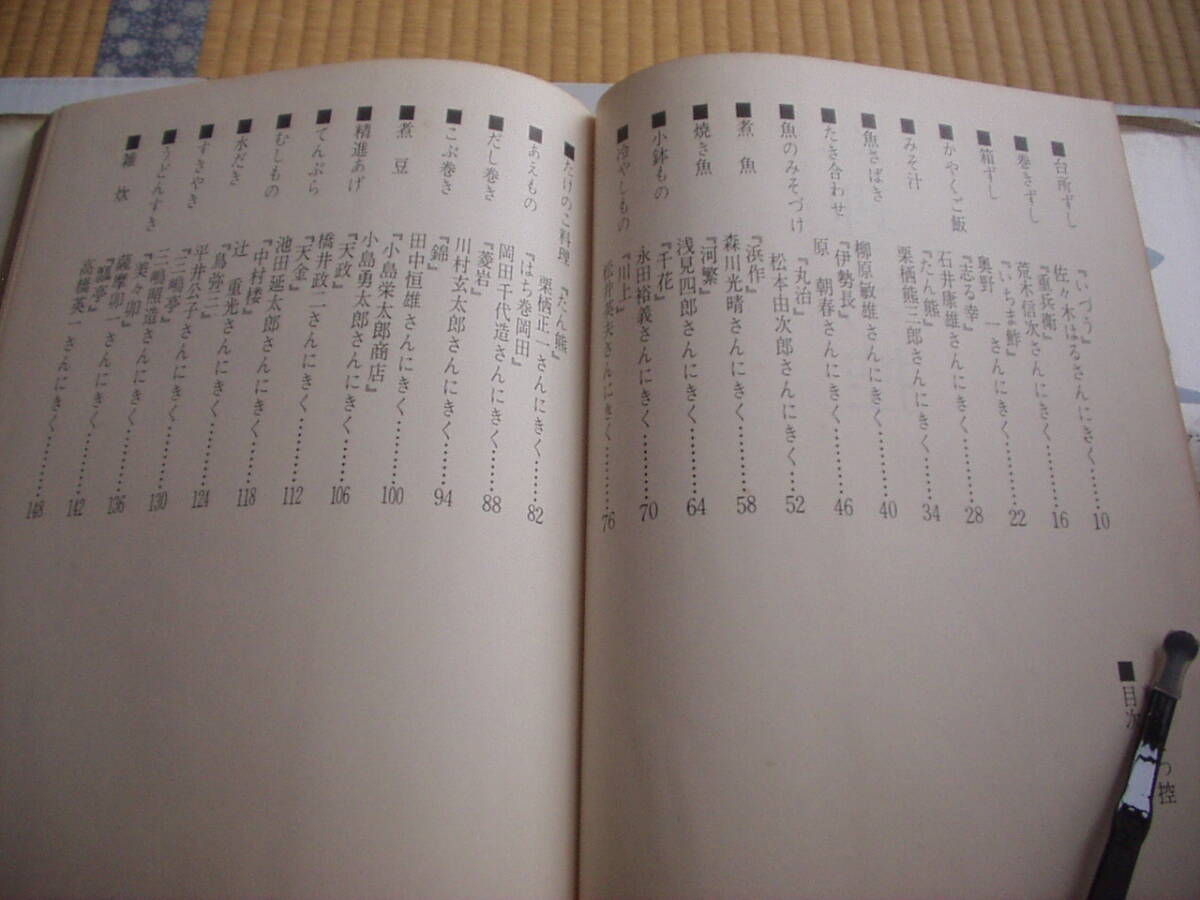 つ控
■目次
■台所ずし 『いづう』
佐々木はるさんにきく……10
■巻きずし 『重兵衛』
荒木信次さんにきく……16
■箱ずし 『いちま鮓』
奥野 一さんにきく……22
■かやくご飯 『志る幸』
石井康雄さんにきく……28
■みそ汁 『たん熊』
栗栖熊三郎さんにきく……34
■魚さばき
柳原敏雄さんにきく……40
■たき合わせ 『伊勢長』
原 朝春さんにきく……46
■魚のみそづけ 『丸治』
松本由次郎さんにきく……52
■煮魚 『浜作』
森川光晴さんにきく……58
■焼き魚 『河繁』
浅見四郎さんにきく……64
■小鉢もの 『千花』
永田裕義さんにきく……70
■冷やしもの 『川上』
松井英夫さんにきく……76
■たけのこ料理 『たん熊』
栗栖正一さんにきく……82
■あえもの 『はち巻岡田』
岡田千代造さんにきく……88
■だし巻き 『菱岩』
川村玄太郎さんにきく……94
■こぶ巻き 『錦』
田中恒雄さんにきく……100
■煮豆 『小島栄太郎商店』
小島勇太郎さんにきく……106
■精進あげ 『天政』
橋井政二さんにきく……112
■てんぷら 『天金』
池田延太郎さんにきく……118
■むしもの 『中村楼』
辻 重光さんにきく……124
■水だき 『鳥弥三』
平井公子さんにきく……130
■すきやき 『三嶋亭』
三嶋照造さんにきく……136
■うどんすき 『美々卯』
薩摩卯一さんにきく……142
■雑炊 『瓢亭』
高橋英一さんにきく……148